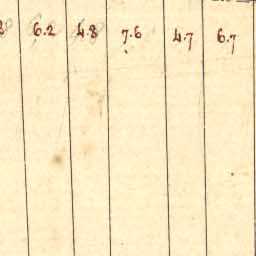 6.2 4.8 7.6 4.7 6.7